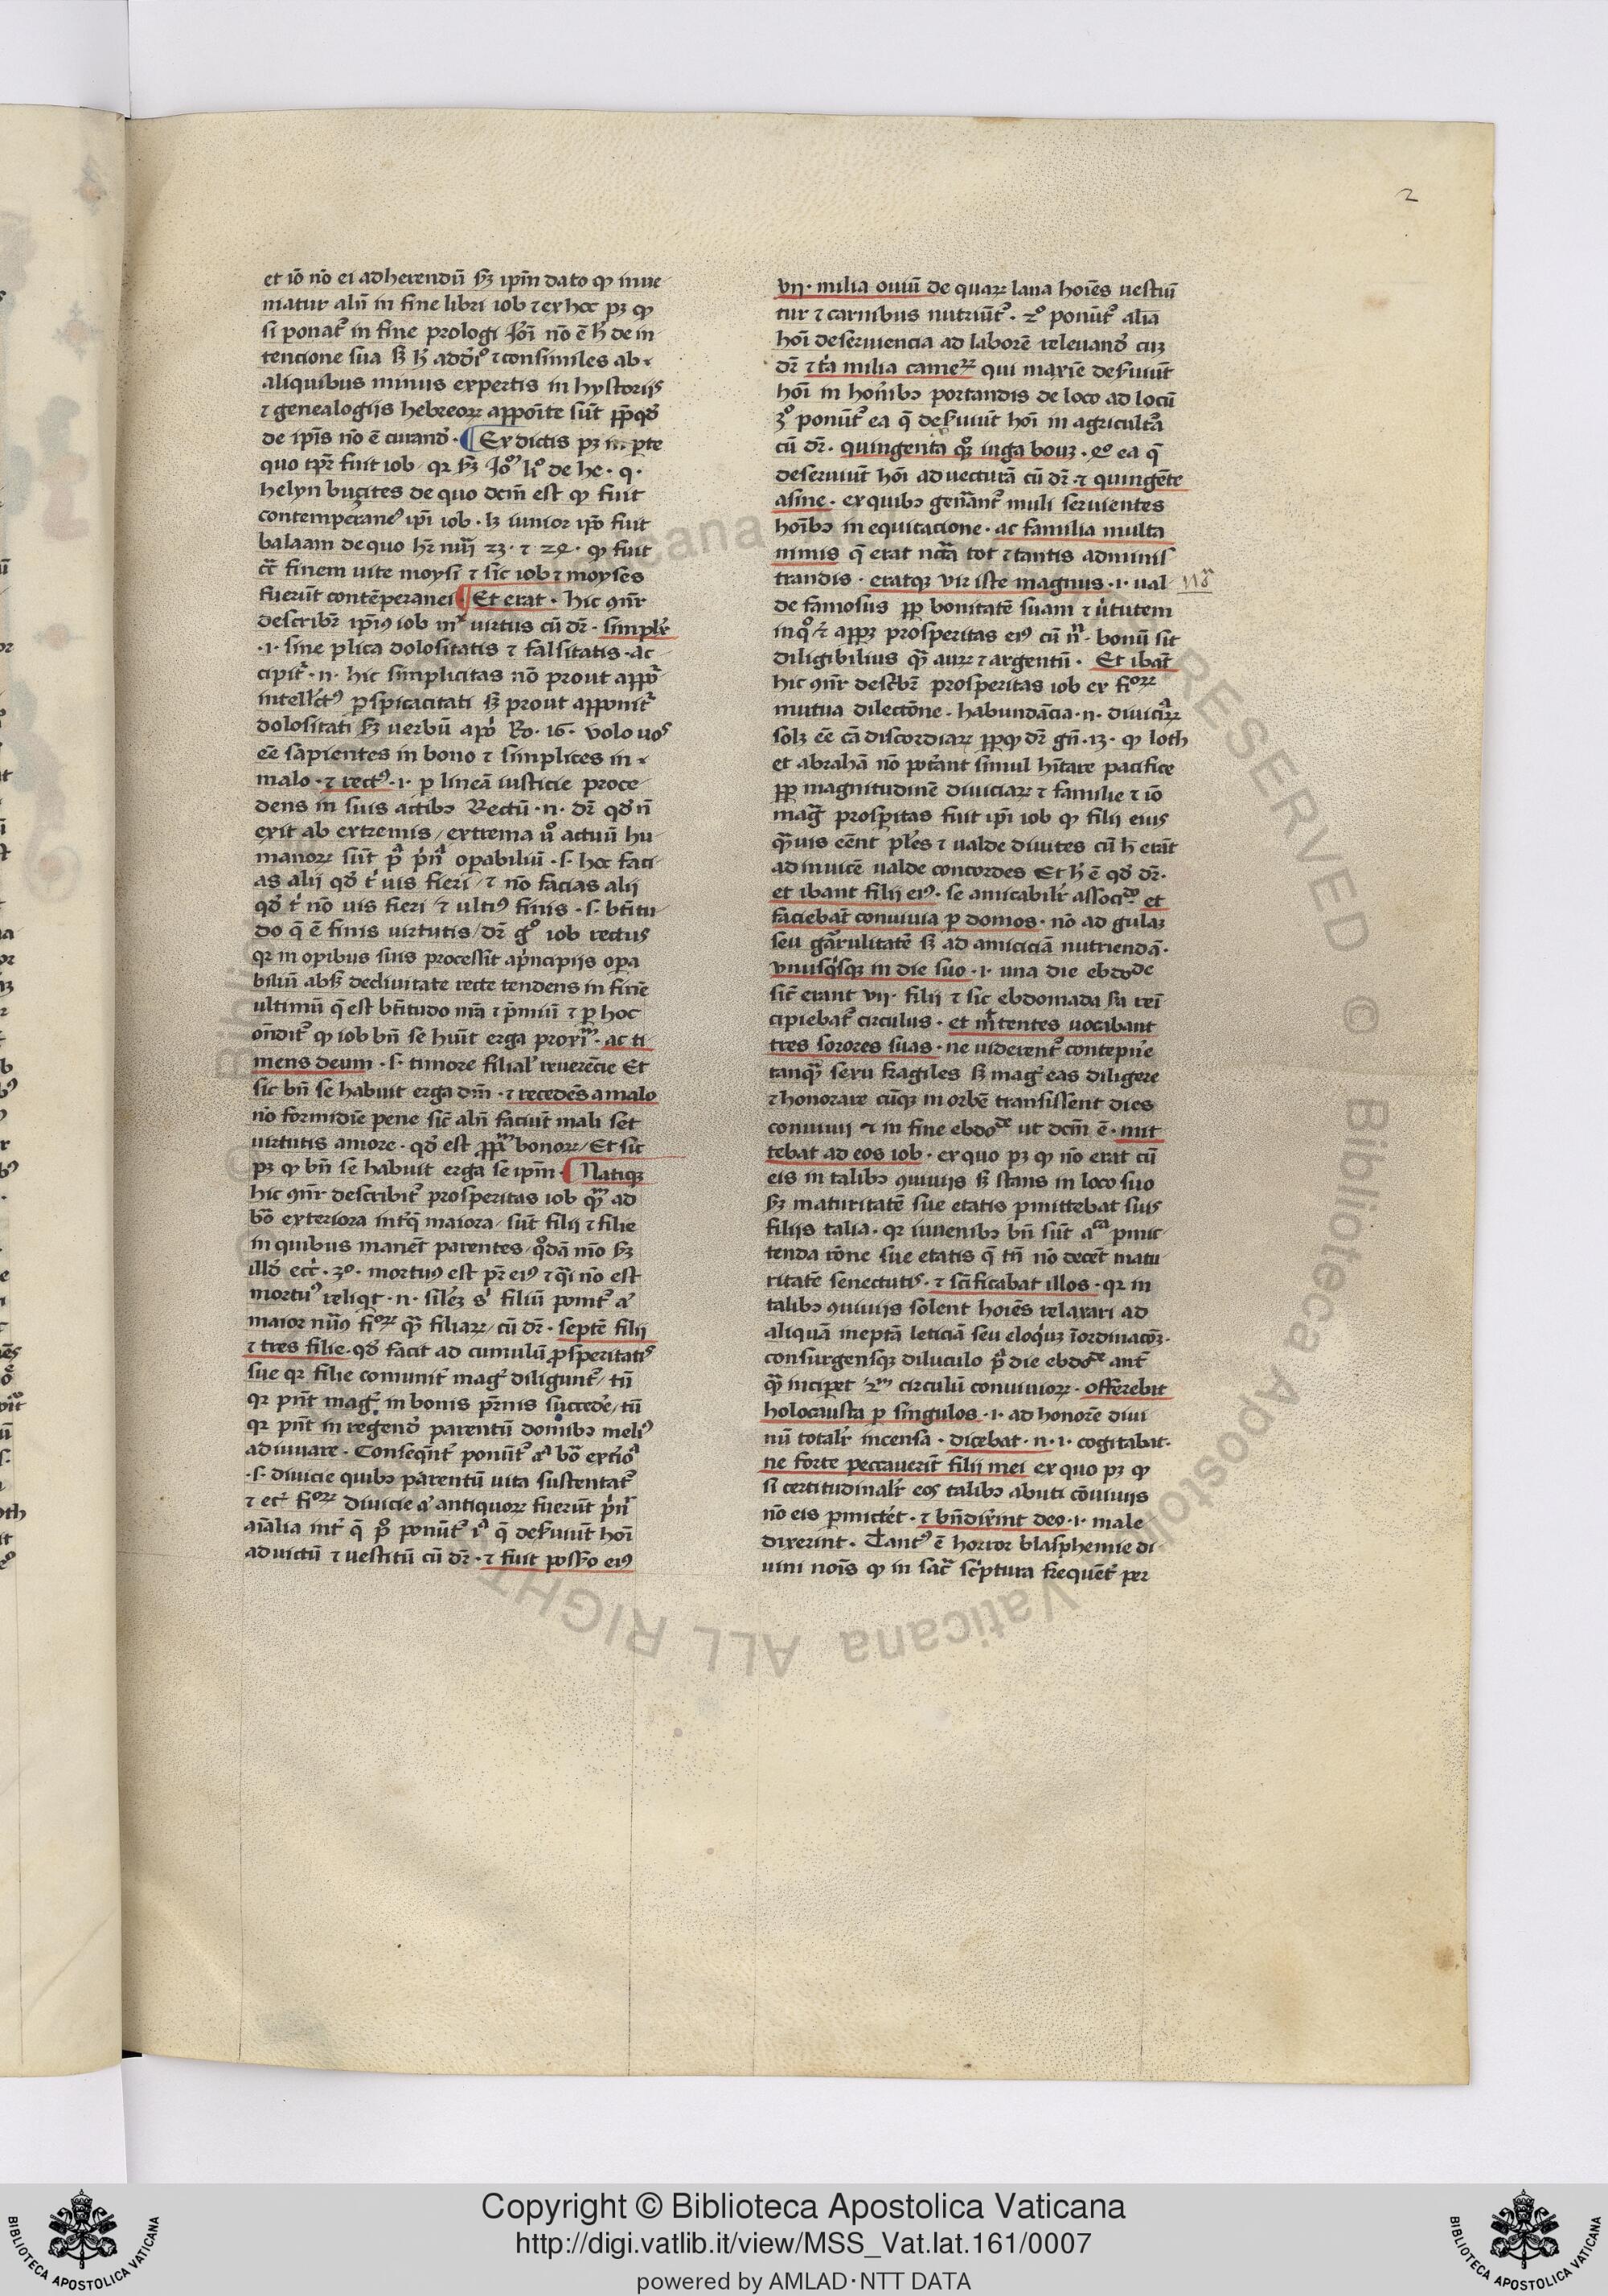 2
et iō nō ei adherendū sꝫ ipīm dato ꝙ inue
niatur alr̄ in fine libri iob ⁊ ex hoc pꝫ ꝙ
si ponat᷑ in fine prologi Jōi nō ē h̄ de in
tencione sua sꝫ h̄ addit᷑ ⁊ consimiles ab
aliquibus minus expertis in hystorijs
⁊ genealogijs hebreoꝝ apposite sūt ꝓpt̄ qd̄
de ip̄is nō ē curand᷑ · ¶ Ex dictis pꝫ in pte
quo tp̄r fuit iob qr sꝫ Jōꝫ liº de he · q ·
helyn buzites de quo dcm̄ est ꝙ fuit
contemperane᷒ ip̄i iob · lꝫ iunior ip̄o fuit
balaam de quo hr̄ nūi 23 · ⁊ 24 · ꝙ fuit
cc̄ finem uite moysi ⁊ sic iob ⁊ moyses
fuerūt contēperanei ¶ Et erat · hic ꝯn̄r
describr̄ ip̄i᷒ iob in virtus cū dr̄ · simplex
·i· sine plica dolositatis ⁊ falsitatis · ac
cipit᷑ · n · hic simplicitas nō prout appōr
intell'ct᷒ ꝑspicacitati sꝫ prout apponit᷑
dolositati sꝫ verbū apl̄i Ro · 16 · volo uos
eē sapientes in bono ⁊ simplices in
malo · ⁊ rect᷒ ·i· ꝑ lineā iusticie proce
dens in suis actibꝫ Rectū · n · dr̄ qd̄ n̄
exit ab extremis / extrema uº actuū hu
manoꝝ sūt pª prīª opabiliū · s · hoc faci
as alij qd̄ tⁱ uis fieri / ⁊ nō facias alij
qd̄ tⁱ nō uis fieri / ⁊ ulti᷒ finis · s · bt̄itu
do q̄ ē finis virtutis / dr̄ gº iob rectus
qr in opibus suis processit a pⁱncipijs opa
biliū absꝫ decliuitate recte tendens in finē
ultimū q̄ est bt̄itudo nr̄a ⁊ pⁱmiū ⁊ ꝑ hoc
on̄dit᷑ ꝙ iob bn̄ se huīt erga proxīm · ac ti
mens deum · s · timore filial' reuerēcie Et
sic bn̄ se habuit erga dm̄ · ⁊ recedēs a malo
nō formidīe pene sic̄ alr̄ faciūt mali set
virtutis amore · qd̄ est ꝓpⁱū bonoꝝ / Et sic
pꝫ ꝙ bn̄ se habuit erga se ip̄m · ¶ Natiqꝫ
hic ꝯn̄r describit᷑ prosperitas iob qꝫ ad
bōª exteriora int̄ q̄ maiora / sūt filij ⁊ filie
in quibus manēt parentes / qºdā mō sꝫ
illd̄ ecc̄ · 3º · mortu᷒ est pr̄ ei᷒ ⁊ qⁱi nō est
mortu᷒ reliqt · n · sil'eꝫ sⁱ filiū ponit᷑ aᷓ
maior nū᷒ fiºꝝ qª filiaꝝ / cū dr̄ · septē filij
⁊ tres filie · qd̄ facit ad cumulū ꝓsperitatis
sue qr filie comunit᷑ mag᷑ diligunt᷑ / tū
qr pn̄t mag᷑ in bonis pr̄nis succede᷑ / tū
qr pn̄t in regend᷑ parentū domibꝫ meli᷒
adiuuare · Conseq̄nt᷑ ponūt᷑ aª bōª ext̄iōª
·s· diuicie quibꝫ parentū uita sustentat᷑
⁊ ec᷑ fiºꝝ diuicie aᷓ antiquoꝝ fuerūt pⁱnª
aīalia int᷑ q̄ pº ponūt᷑ iª q̄ deßuiūt hoī
ad uictū ⁊ uestitū cū dr̄ · ⁊ fuit possº ei᷒
vij · milia ouiū de quaꝝ lana hoīes uestiū
tur ⁊ carnibus nutriūt᷑ · 2º ponūt᷑ alia
hoī deseruiencia ad laborē releuand᷑ cuꝫ
dr̄ ⁊ tⁱa milia cameꝝ qui maxīe deßuiūt
hoī in honⁱibꝫ portandis de loco ad locū
3º ponūt᷑ ea q̄ deßuiūt hoī in agricult᷑a
cū dr̄ · quingenta qºꝫ iuga bouꝫ · 4º ea q̄
deseruiūt hoī ad uecturā cū dr̄ · ⁊ quingēte
asine · ex quibꝫ gen̄ant᷑ muli seruientes
hoībꝫ in equitacione · ac familia multa
nimis q̄ erat nc̄cͥa tot ⁊ tantis adminis
trandis · eratqꝫ vir iste magnus ·i· ual
de famosus ꝓp̄ bonitatē suam ⁊ ùtutem
in qº ⁊ᵃ appꝫ prosperitas ei᷒ cū nª · bonū sit
diligibilius qª auꝝ ⁊ argentū · Et ibāt
hic ꝯn̄r descͥbr̄ prosperitas iob ex fiºꝝ
mutua dilectōne · habundācia · n · diuiciaꝝ
solꝫ eē cā discordiaꝝ ꝓp̄ qd̄ dr̄ gn̄ · 13 · ꝙ loth
et abrahā nō poterant simul hītare pacifice
ꝓp̄ magnitudinē diuiciaꝝ ⁊ familie ⁊ iō
magª prosꝑitas fuit ip̄i iob ꝙ filij eius
qªuis eēnt ples ⁊ ualde diuites cū h̄ erāt
ad inuicē ualde concordes Et h̄ ē qd̄ dr̄ ·
et ibant filij ei᷒ · se amicabilr̄ associādo et
faciebāt conuiuia ꝑ domos · nō ad gulaꝫ
seu garrulitatē sꝫ ad amiciciā nutriendā ·
vnusqⁱsqꝫ in die suo ·i· una die ebdode
sic̄ erant vij · filij ⁊ sic ebdomada sª rei
cipiebat᷑ circulus · et mⁱtentes uocabant
tres sorores suas · ne uiderent᷑ contēpne
tanqª sexu fragiles sꝫ mag᷑ eas diligere
⁊ honorare cūqꝫ in orbē transissent dies
conuiuij ⁊ in fine ebdode ut dcm̄ ē · mit
tebat ad eos iob · ex quo pꝫ ꝙ nō erat cū
eis in talibꝫ ꝯuiuijs sꝫ stans in loco suo
sꝫ maturitatē sue etatis pmittebat suis
filijs talia · qr iuuenibꝫ bn̄ sūt aᷓ pmit
tenda rōne sue etatis q̄ tn̄ nō decēt matu
ritatē senectutis · ⁊ sc̄ificabat illos · qr in
talibꝫ ꝯuiuijs solent hoīes relaxari ad
aliquā ineptā leticiā seu eloqⁱuꝫ īordinacōꝫ ·
consurgensqꝫ diluculo pª die ebdode ant̄
qª incipet 2m circulū conuiuioꝝ · offerebat
holocausta ꝑ singulos ·i· ad honorē diui
nū totalr̄ incensa · dicebat · n ·i· cogitabat ·
ne forte peccauerīt filij mei ex quo pꝫ ꝙ
si certitudinalr̄ eos talibꝫ abuti cōuiuijs
nō eis pmictet · ⁊ bn̄dixⁱint deo ·i· male
dixerint · Tant᷒ ē horror blasphemie di
uini noīs ꝙ in sacª scͥptura frequēt᷑ per
Copyright © Biblioteca Apostolica Vaticana
http://digi.vatlib.it/view/MSS_Vat.lat.161/0007
powered by AMLAD·NTT DATA
BIBLIOTECA APOSTOLICA VATICANA
BIBLIOTECA APOSTOLICA VATICANA